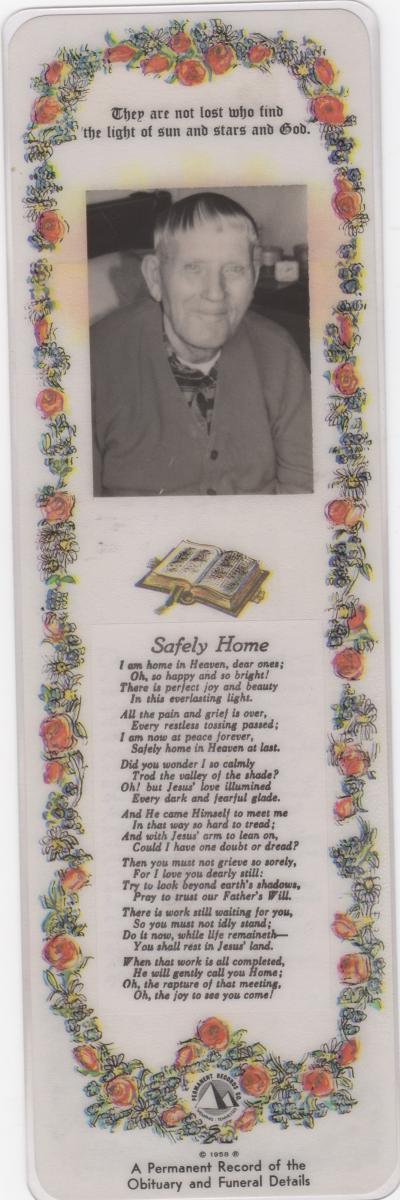 They are not lost who find
the light of sun and stars and God.
Safely Home
I am home in Heaven, dear ones;
Oh, so happy and so bright!
There is perfect joy and beauty
In this everlasting light.
All the pain and grief is over,
Every restless tossing passed;
I am now at peace forever,
Safely home in Heaven at last.
Did you wonder I so calmly
Trod the valley of the shade?
Oh! but Jesus' love illumined
Every dark and fearful glade.
And He came Himself to meet me
In that way so hard to tread;
And with Jesus' arm to lean on,
Could I have one doubt or dread?
Then you must not grieve so sorely,
For I love you dearly still:
Try to look beyond earth's shadows,
Pray to trust our Father's Will.
There is work still waiting for you,
So you must not idly stand;
Do it now, while life remaineth—
You shall rest in Jesus' land.
When that work is all completed,
He will gently call you Home;
Oh, the rapture of that meeting,
Oh, the joy to see you come!
PERMANENT RECORD CO.
© 1958 ®
A Permanent Record of the
Obituary and Funeral Details